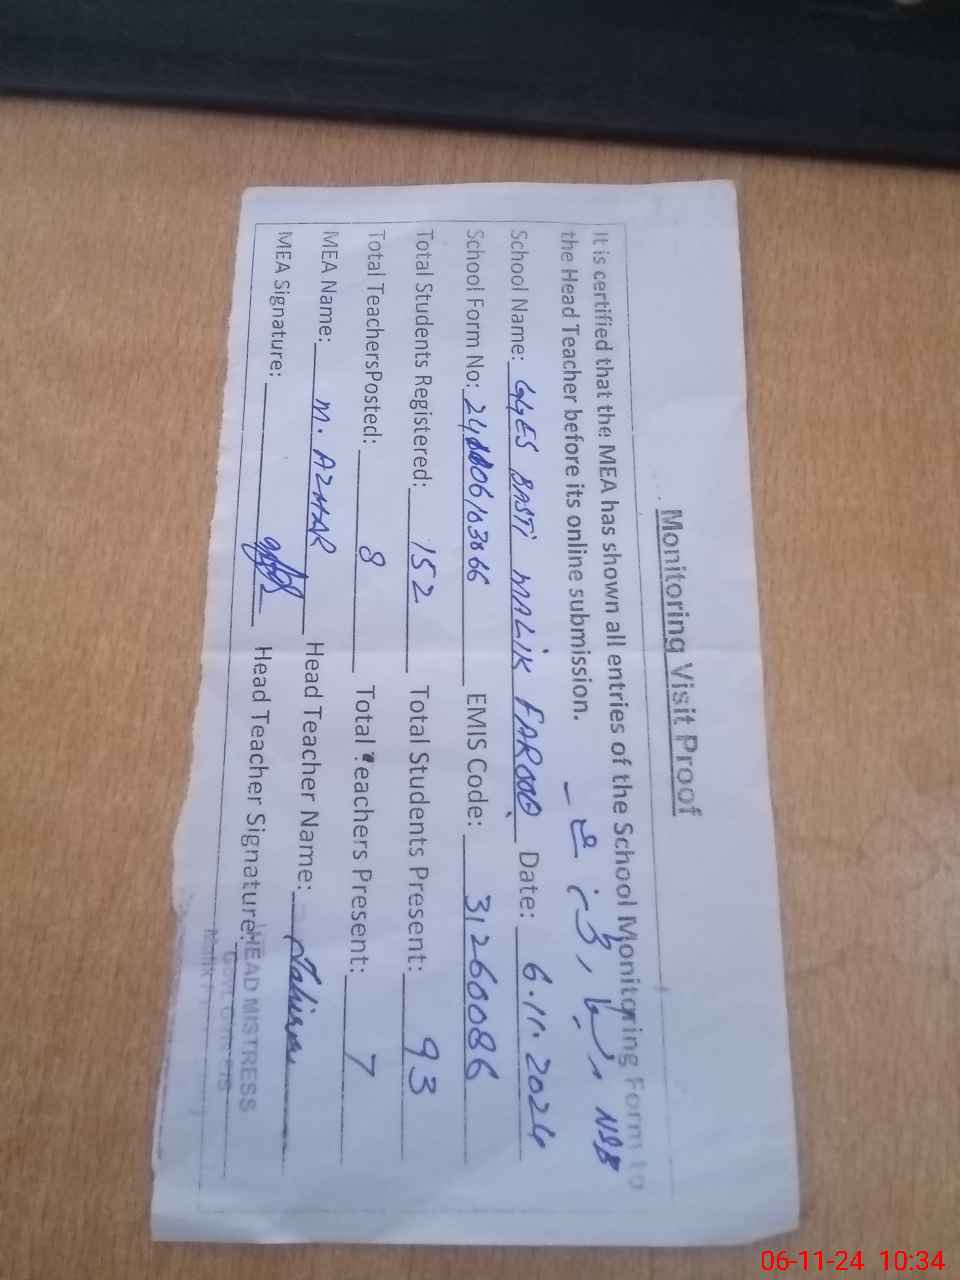 Monitoring Visit Proof
It is certified that the MEA has shown all entries of the School Monitoring Form to
the Head Teacher before its online submission. NSB
School Name: GGES BASTI MALIK FAROOQ Date: 6.11.2024
School Form No: EMIS Code: 31260086
Total Students Registered: 152 Total Students Present: 93
Total TeachersPosted: 8 Total Teachers Present: 7
MEA Name: M. AZHAR Head Teacher Name: Tahira
MEA Signature: Head Teacher Signature:
HEAD MISTRESS
06-11-24 10:34